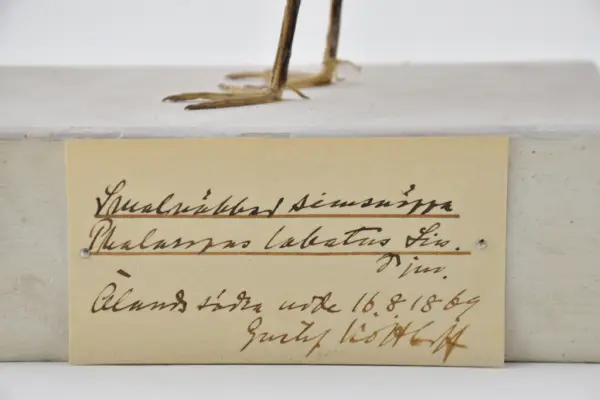 Smalnäbbad simsnäppa
Phalaropus lobatus Lin.
♂ juv.
Ölands södra udde 16.8.1869
Gustaf Kolthoff